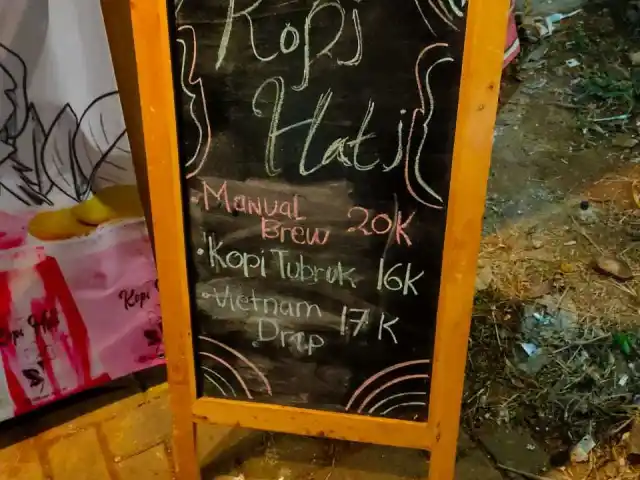 Kopi
Hati
• Manual 20K
Brew
• Kopi Tubruk 16K
• Vietnam 17K
Drip
Kopi